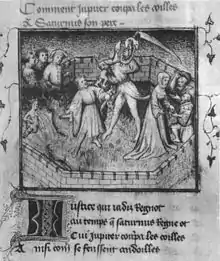 Comment jupiter coupa les coilles
A Saturnus son pere
Justice qui iadis Regnot
au temps q saturnus Regne ot
Cui jupiter coupa les coilles
Ausi com se feussent andoilles